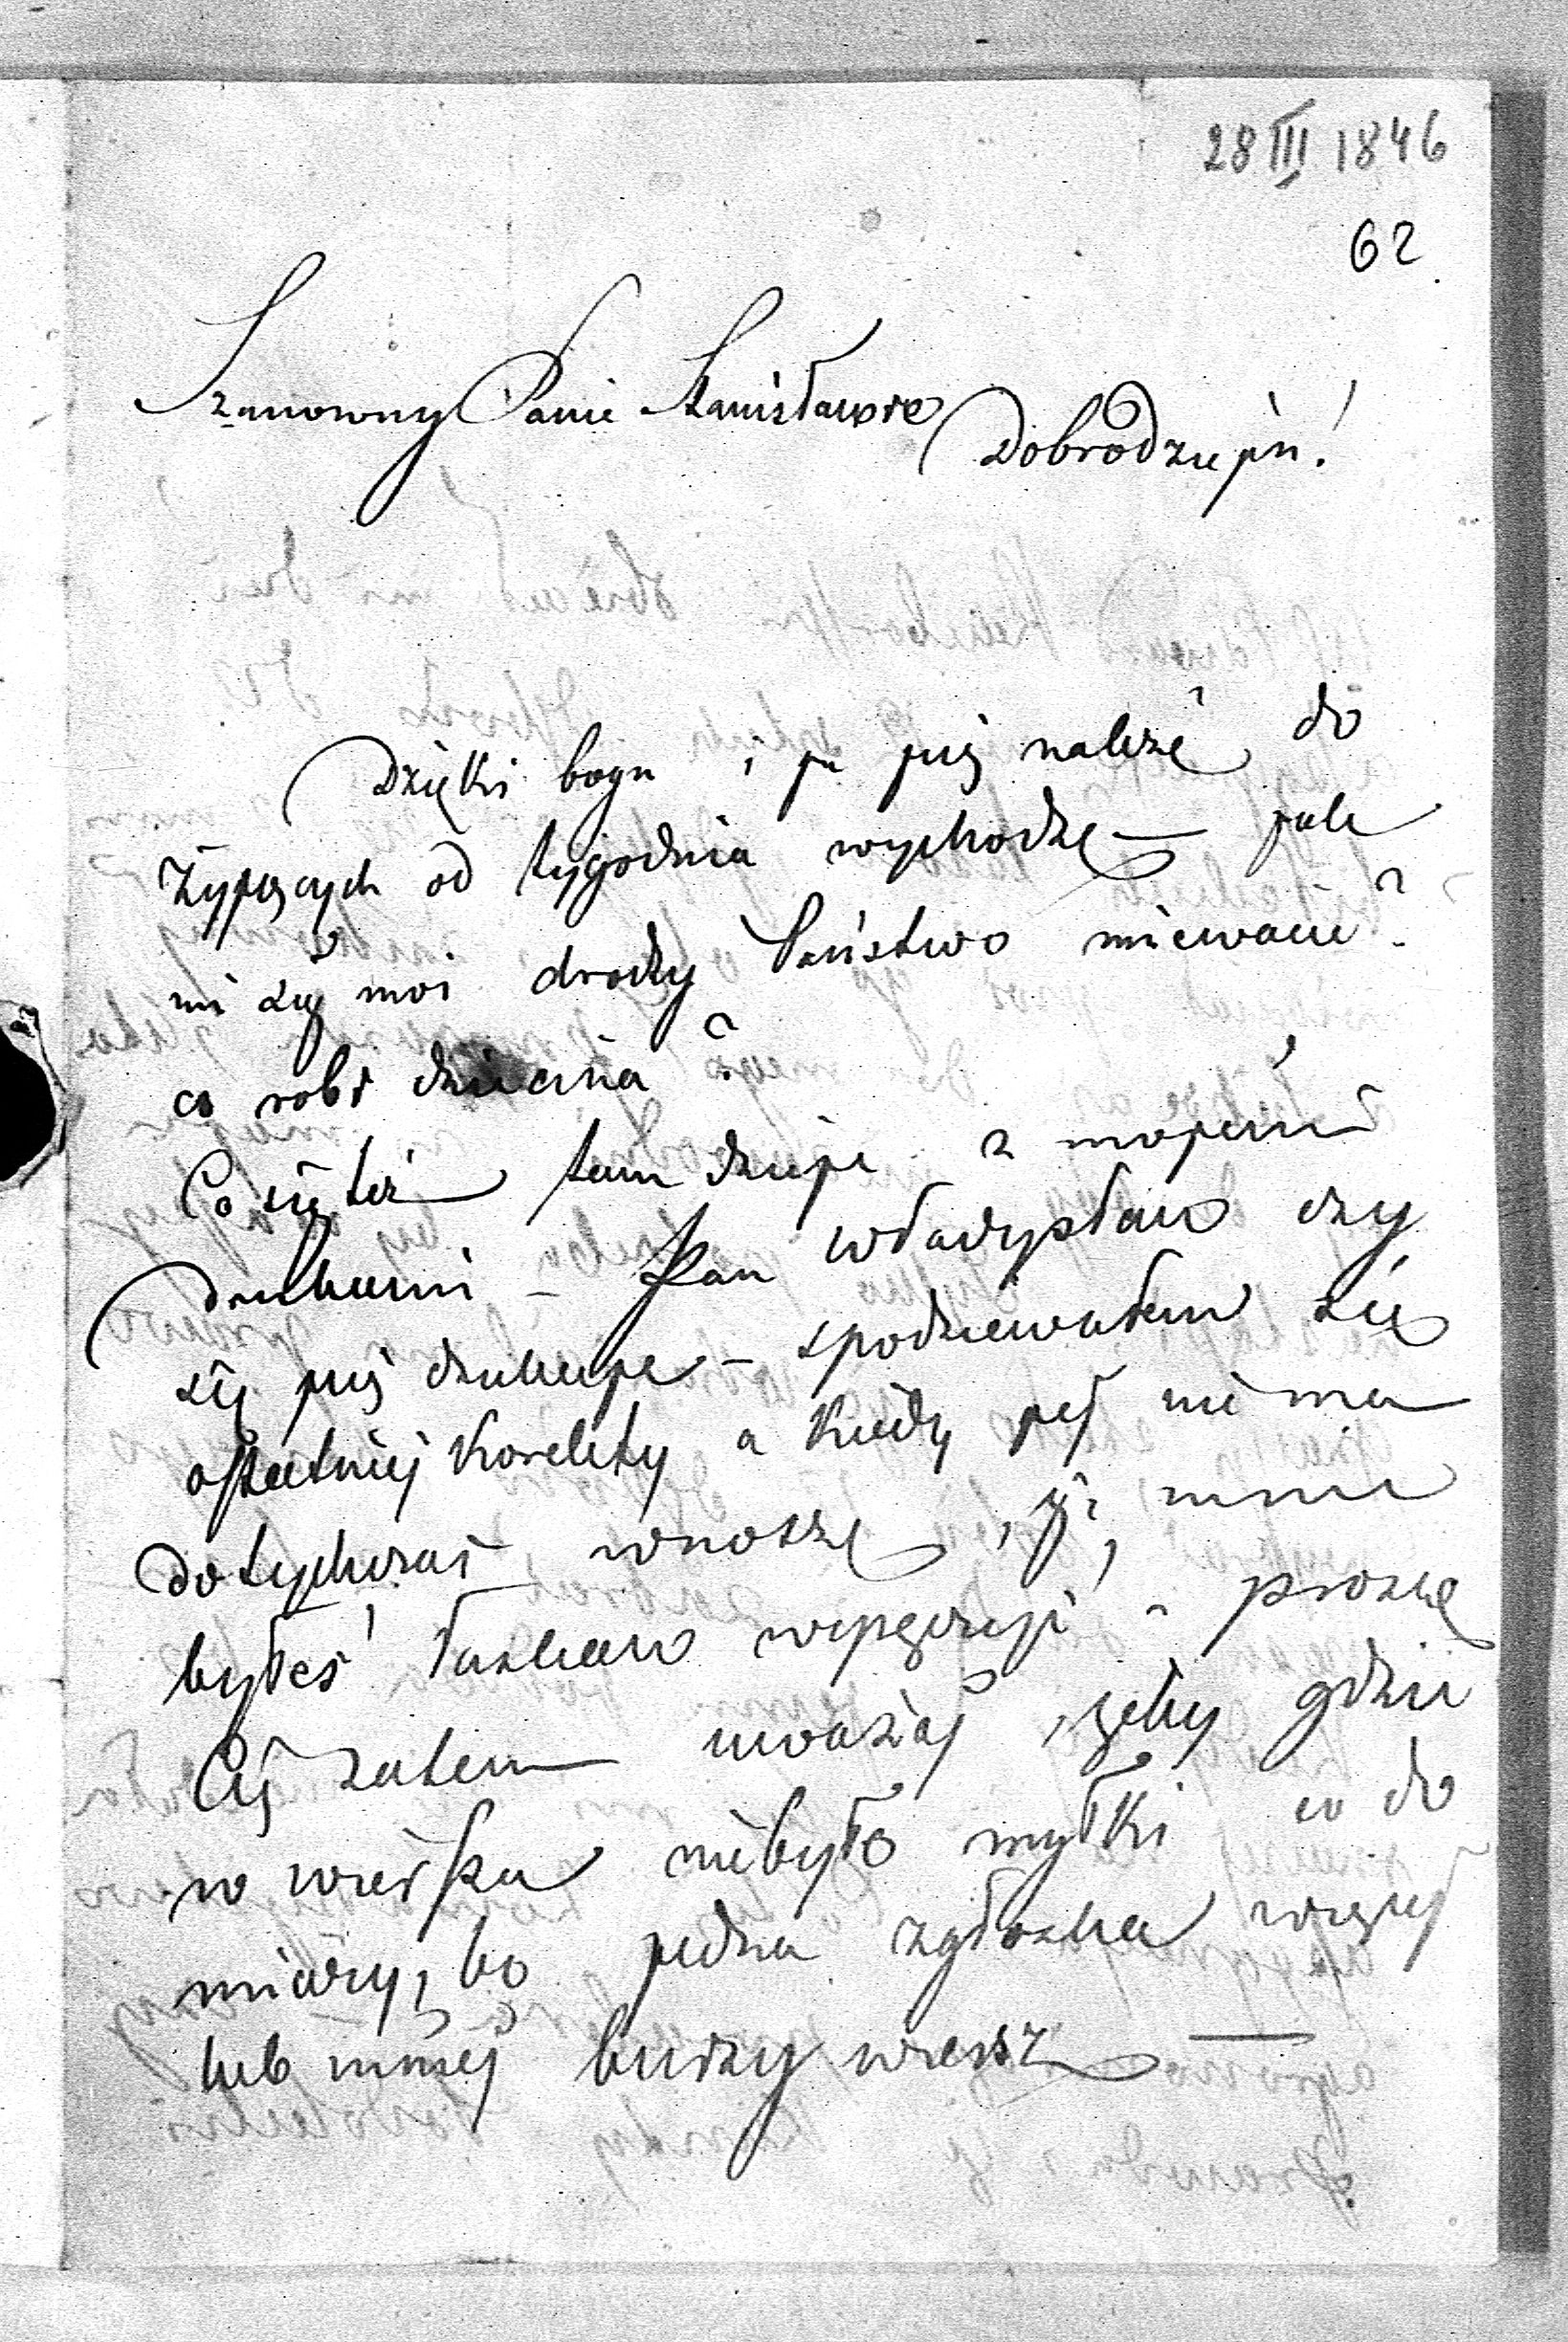 28 III 1846
62
Szanowny Panie Stanisławie
Dobrodzieju!
Dzięki bogu i ja już należę do
żyjących od tygodnia wychodzę — jak
mi się moi drodzy Państwo miewacie?
co robi dziecina?
Co się też tam dzieje z mojemi
drukami – Pan Władysław czy
się już drukuje – spodziewałem się
ostatniej korekty a kiedy jej nie ma
dotychczas, wnoszę, iż mnie
byłeś łaskaw wyręczyć – proszę
Cię zatem uważaj, żeby gdzie
w wierszu niebyło myłki co do
miary, bo jedna zgłoska więcej
lub mniej burzy wiersz —